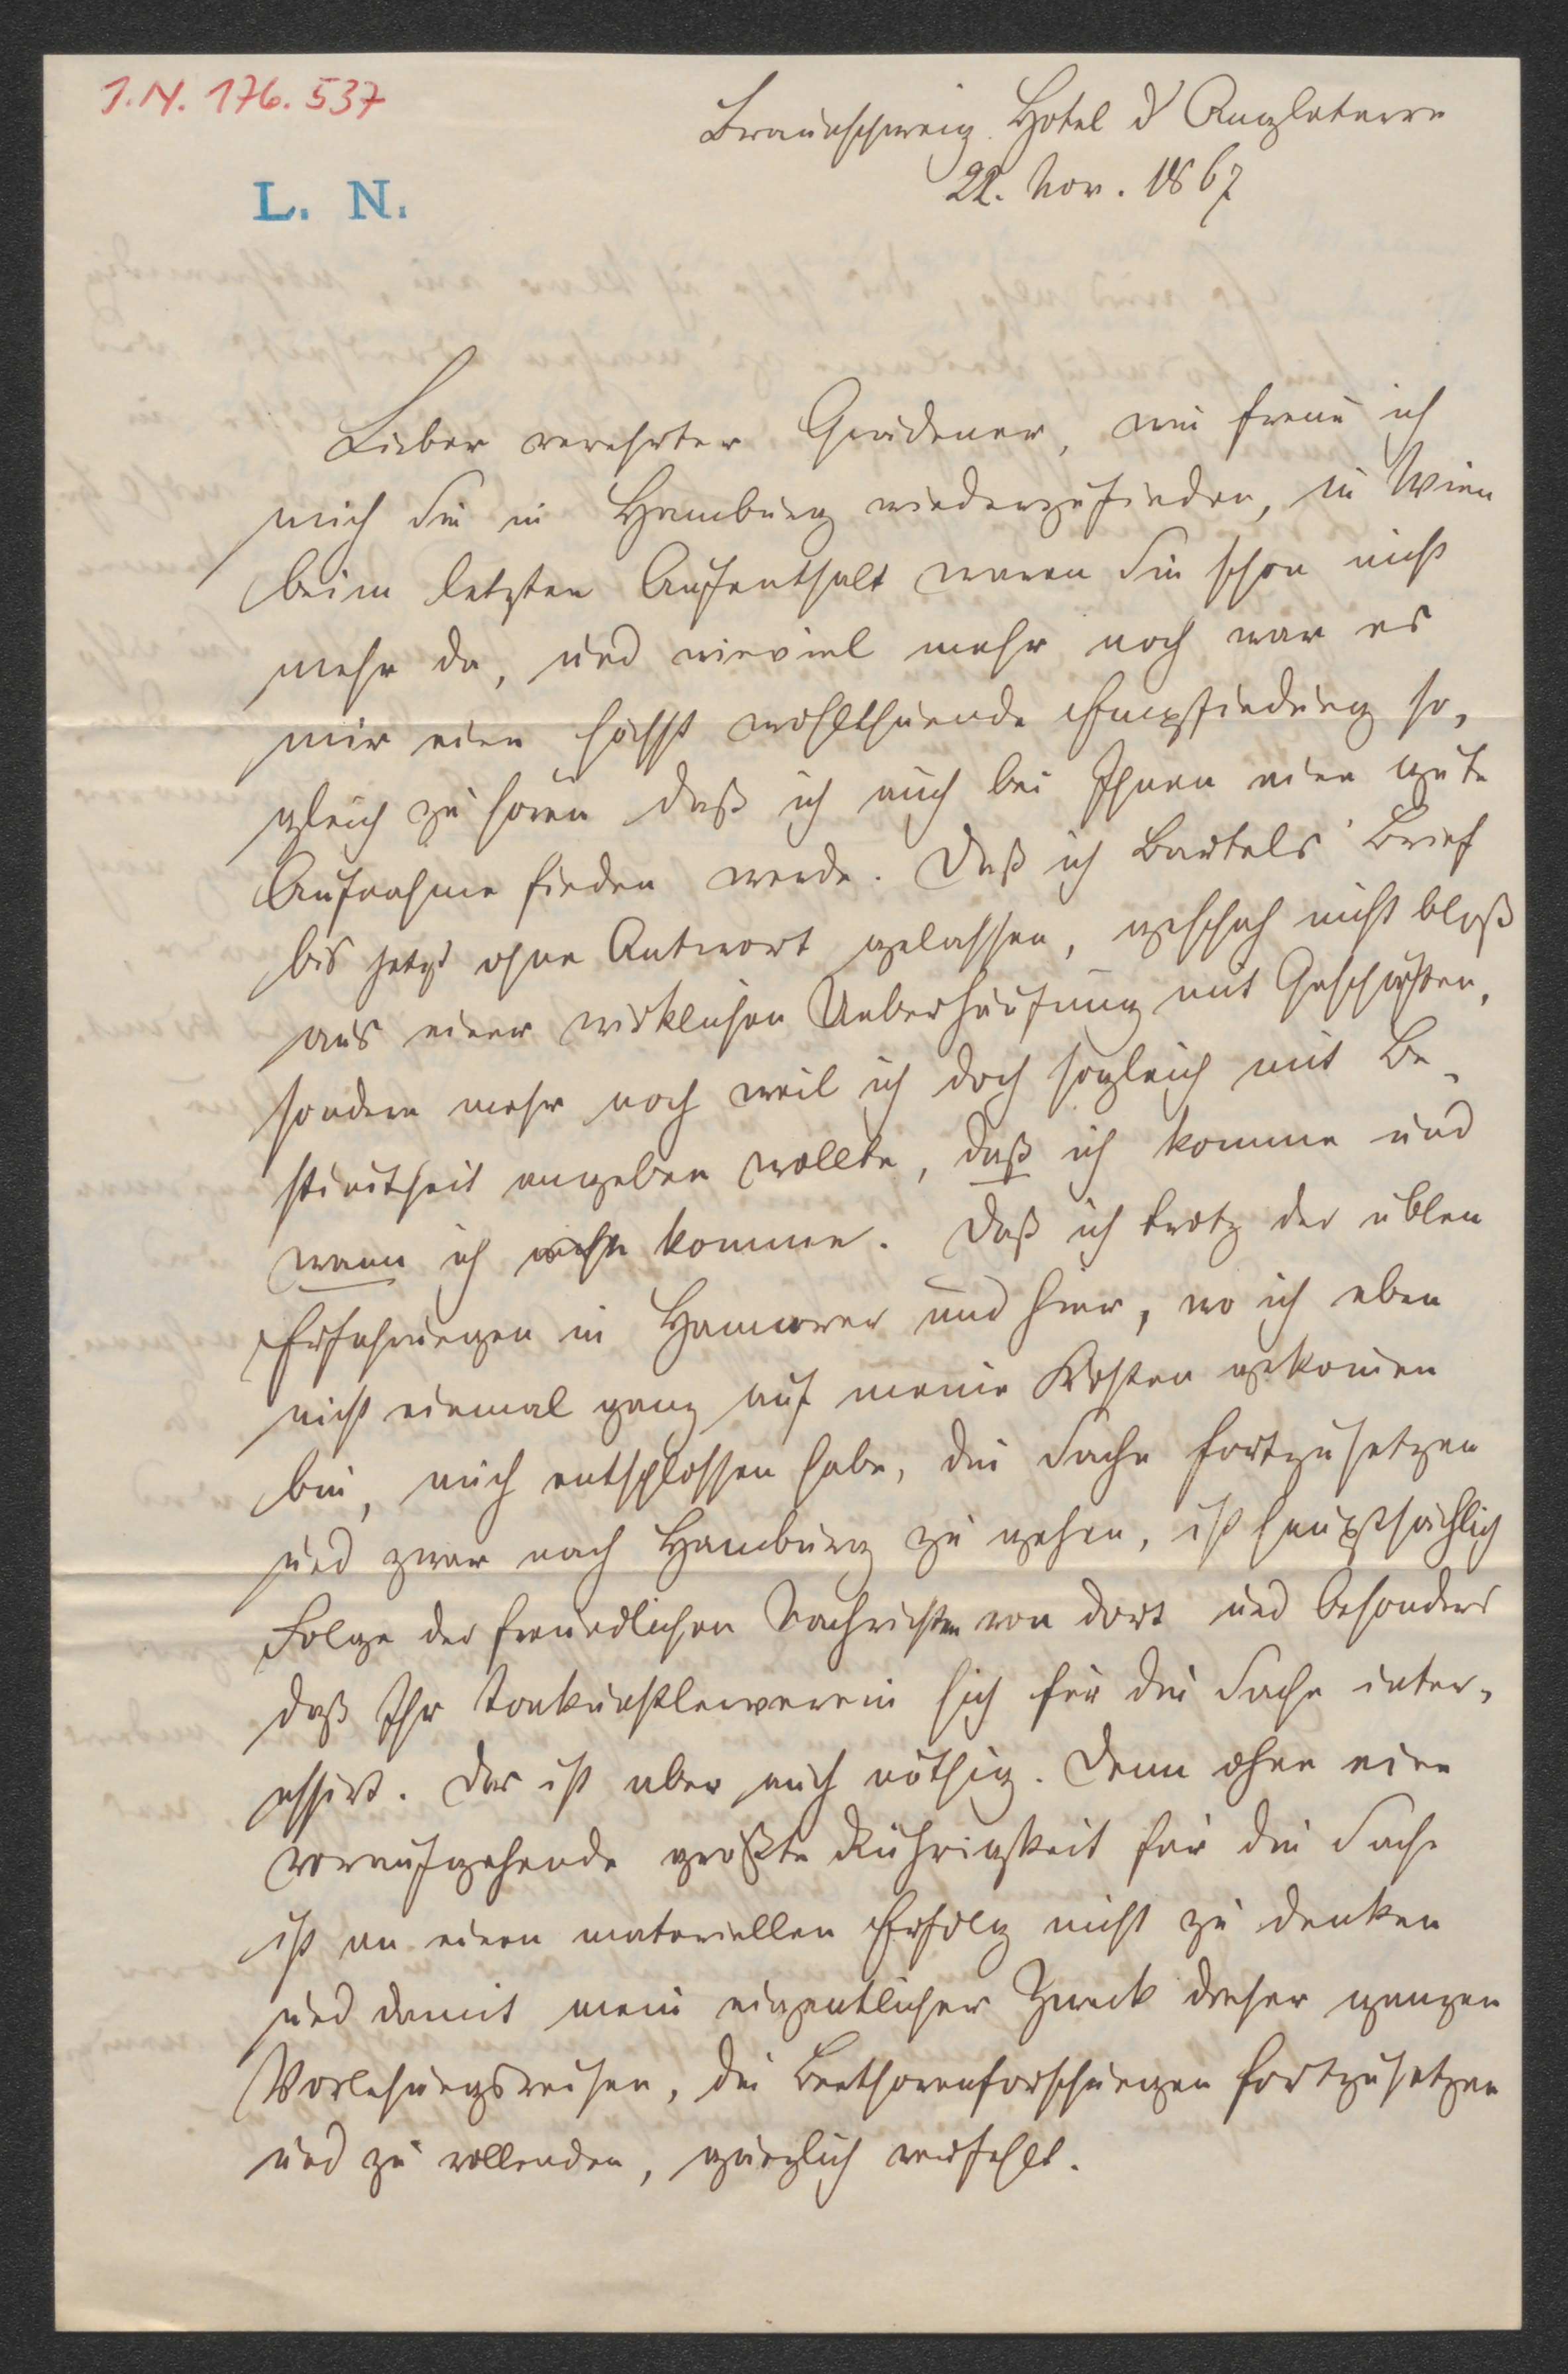 I.N. 176.537
Braunschweig Hotel d'Angleterre
22. Nov. 1867
L. N.
Lieber verehrter Grädener, wie freue ich
mich Sie in Hamburg wiederzufinden, in Wien
beim letzten Aufenthalt waren Sie schon nicht
mehr da, und wieviel mehr noch war es
mir eine höchst wohlthuende Empfindung so-
gleich zu hören daß ich auch bei Ihnen eine gute
Aufnahme finden werde. Daß ich Bartels' Brief
bis jetzt ohne Antwort gelassen, geschah nicht bloß
aus einer wirklichen Ueberhäufung mit Geschäften,
sondern mehr noch weil ich doch sogleich mit Be-
stimtheit angeben wollte, daß ich komme und
wann ich komme. Daß ich trotz der üblen
Erfahrungen in Hannover und hier, wo ich eben
nicht einmal ganz auf meine Kosten gekomen
bin, mich entschlossen habe, die Sache fortzusetzen
und zwar nach Hamburg zu gehen, ist hauptsächlich
Folge der freundlichen Nachrichten von dort und besonders
daß Ihr Tonkünstlerverein sich für die Sache inter-
essirt. Das ist aber auch nöthig. Denn ohne eine
voraufgehende größte Rührigkeit für die Sache
ist an einen materiellen Erfolg nicht zu denken
und damit mein eigentlicher Zweck dieser ganzen
Vorlesungsreisen, die Beethovenforschungen fortzusetzen
und zu vollenden, gänzlich verfehlt.